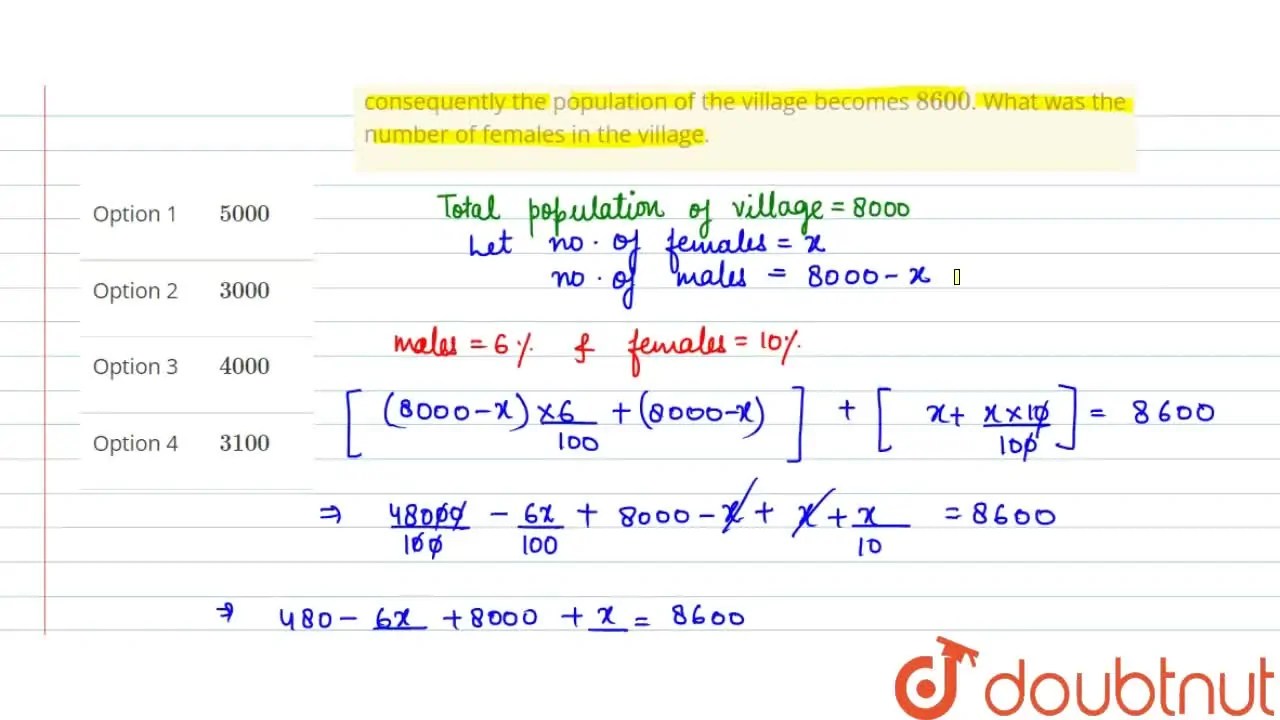 consequently the population of the village becomes 8600. What was the
number of females in the village.
Option 1 5000
Option 2 3000
Option 3 4000
Option 4 3100
Total population of village = 8000
Let no. of females = x
no. of males = 8000 - x
males = 6% & females = 10%
[ (8000 - x) × 6/100 + (8000 - x) ] + [ x + x × 10/100 ] = 8600
⇒ 48000/100 - 6x/100 + 8000 - x + x + x/10 = 8600
⇒ 480 - 6x + 8000 + x = 8600
doubtnut